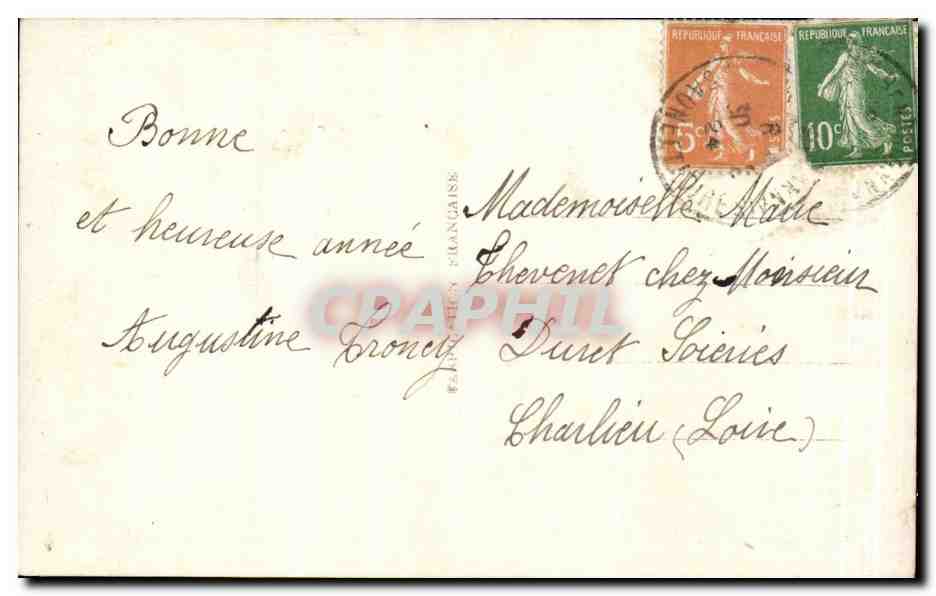 Bonne
et heureuse année
Augustine Troncy
FABRICATION FRANÇAISE
Mademoiselle Marie
Thevenet chez Monsieur
Duret Soieries
Charlieu (Loire)
REPUBLIQUE FRANÇAISE
5c
POSTES
REPUBLIQUE FRANÇAISE
10c
POSTES
24
CPAPHIL